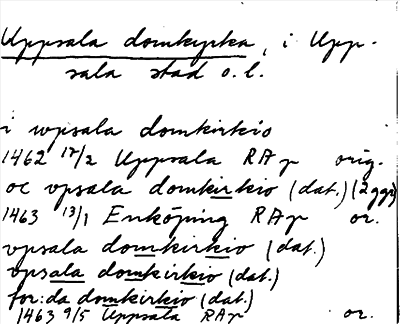 Uppsala domkyrka, i Upp-
sala stad o.l.
i wpsala domkirkio
1462 17/2 Uppsala RAp orig.
oc vpsala domkirkio (dat.) (2 ggr)
1463 13/1 Enköping RAp or.
vpsala domkirkio (dat.)
vpsala domkirkio (dat.)
for:da domkirkio (dat.)
1463 9/5 Uppsala RAp or.